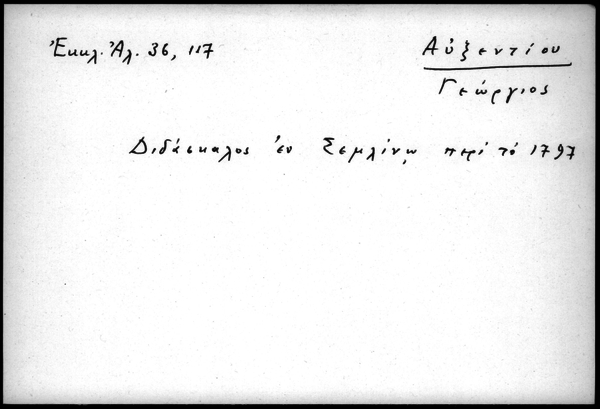 Ἐκκλ. Ἀλ. 36, 117
Αὐξεντίου
Γεώργιος
Διδάσκαλος ἐν Σεμλίνῳ περί τό 1797